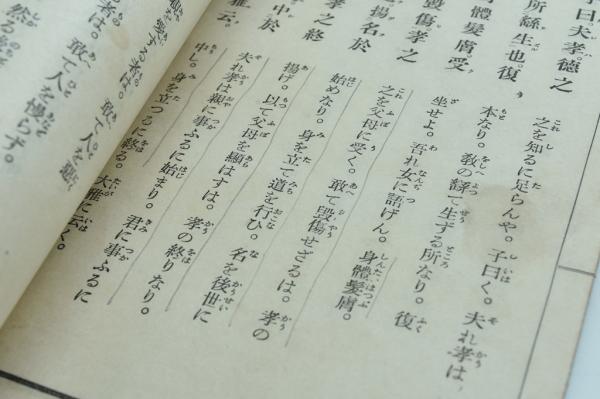 子曰夫孝德之
所繇生也復
體髮膚受
毀傷孝之
揚名於
孝之終
中於
雅云
之を知るに足らんや。子曰く。夫れ孝は、
本なり。教の繇て生ずる所なり。復
坐せよ。吾れ女に語げん。身體髮膚。
之を父母に受く。敢て毀傷せざるは。孝の
始めなり。身を立て道を行ひ。名を後世に
揚げ。以て父母を顯はすは。孝の終りなり。
夫れ孝は親に事ふるに始まり。君に事ふるに
中し。身を立つるに終る。大雅に云く。
愛する者は。敢て人を惡
者は。敢て人を慢らず。